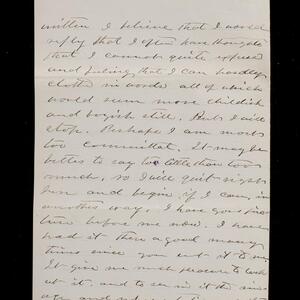 written I believe that I would
reply that I often have thoughts
that I cannot quite express
and feelings that I can hardly
clothe in words all of which
would seem more childish
and boyish still. But I will
stop. Perhaps I am most
too committal. It may be
better to say too little than too
much, so I will quit right
here and begin if I can, in
another way. I have your pic-
ture before me now. I have
had it there a good many
times since you sent it to me.
It gives me much pleasure to look
at it. and to see in it the
and not